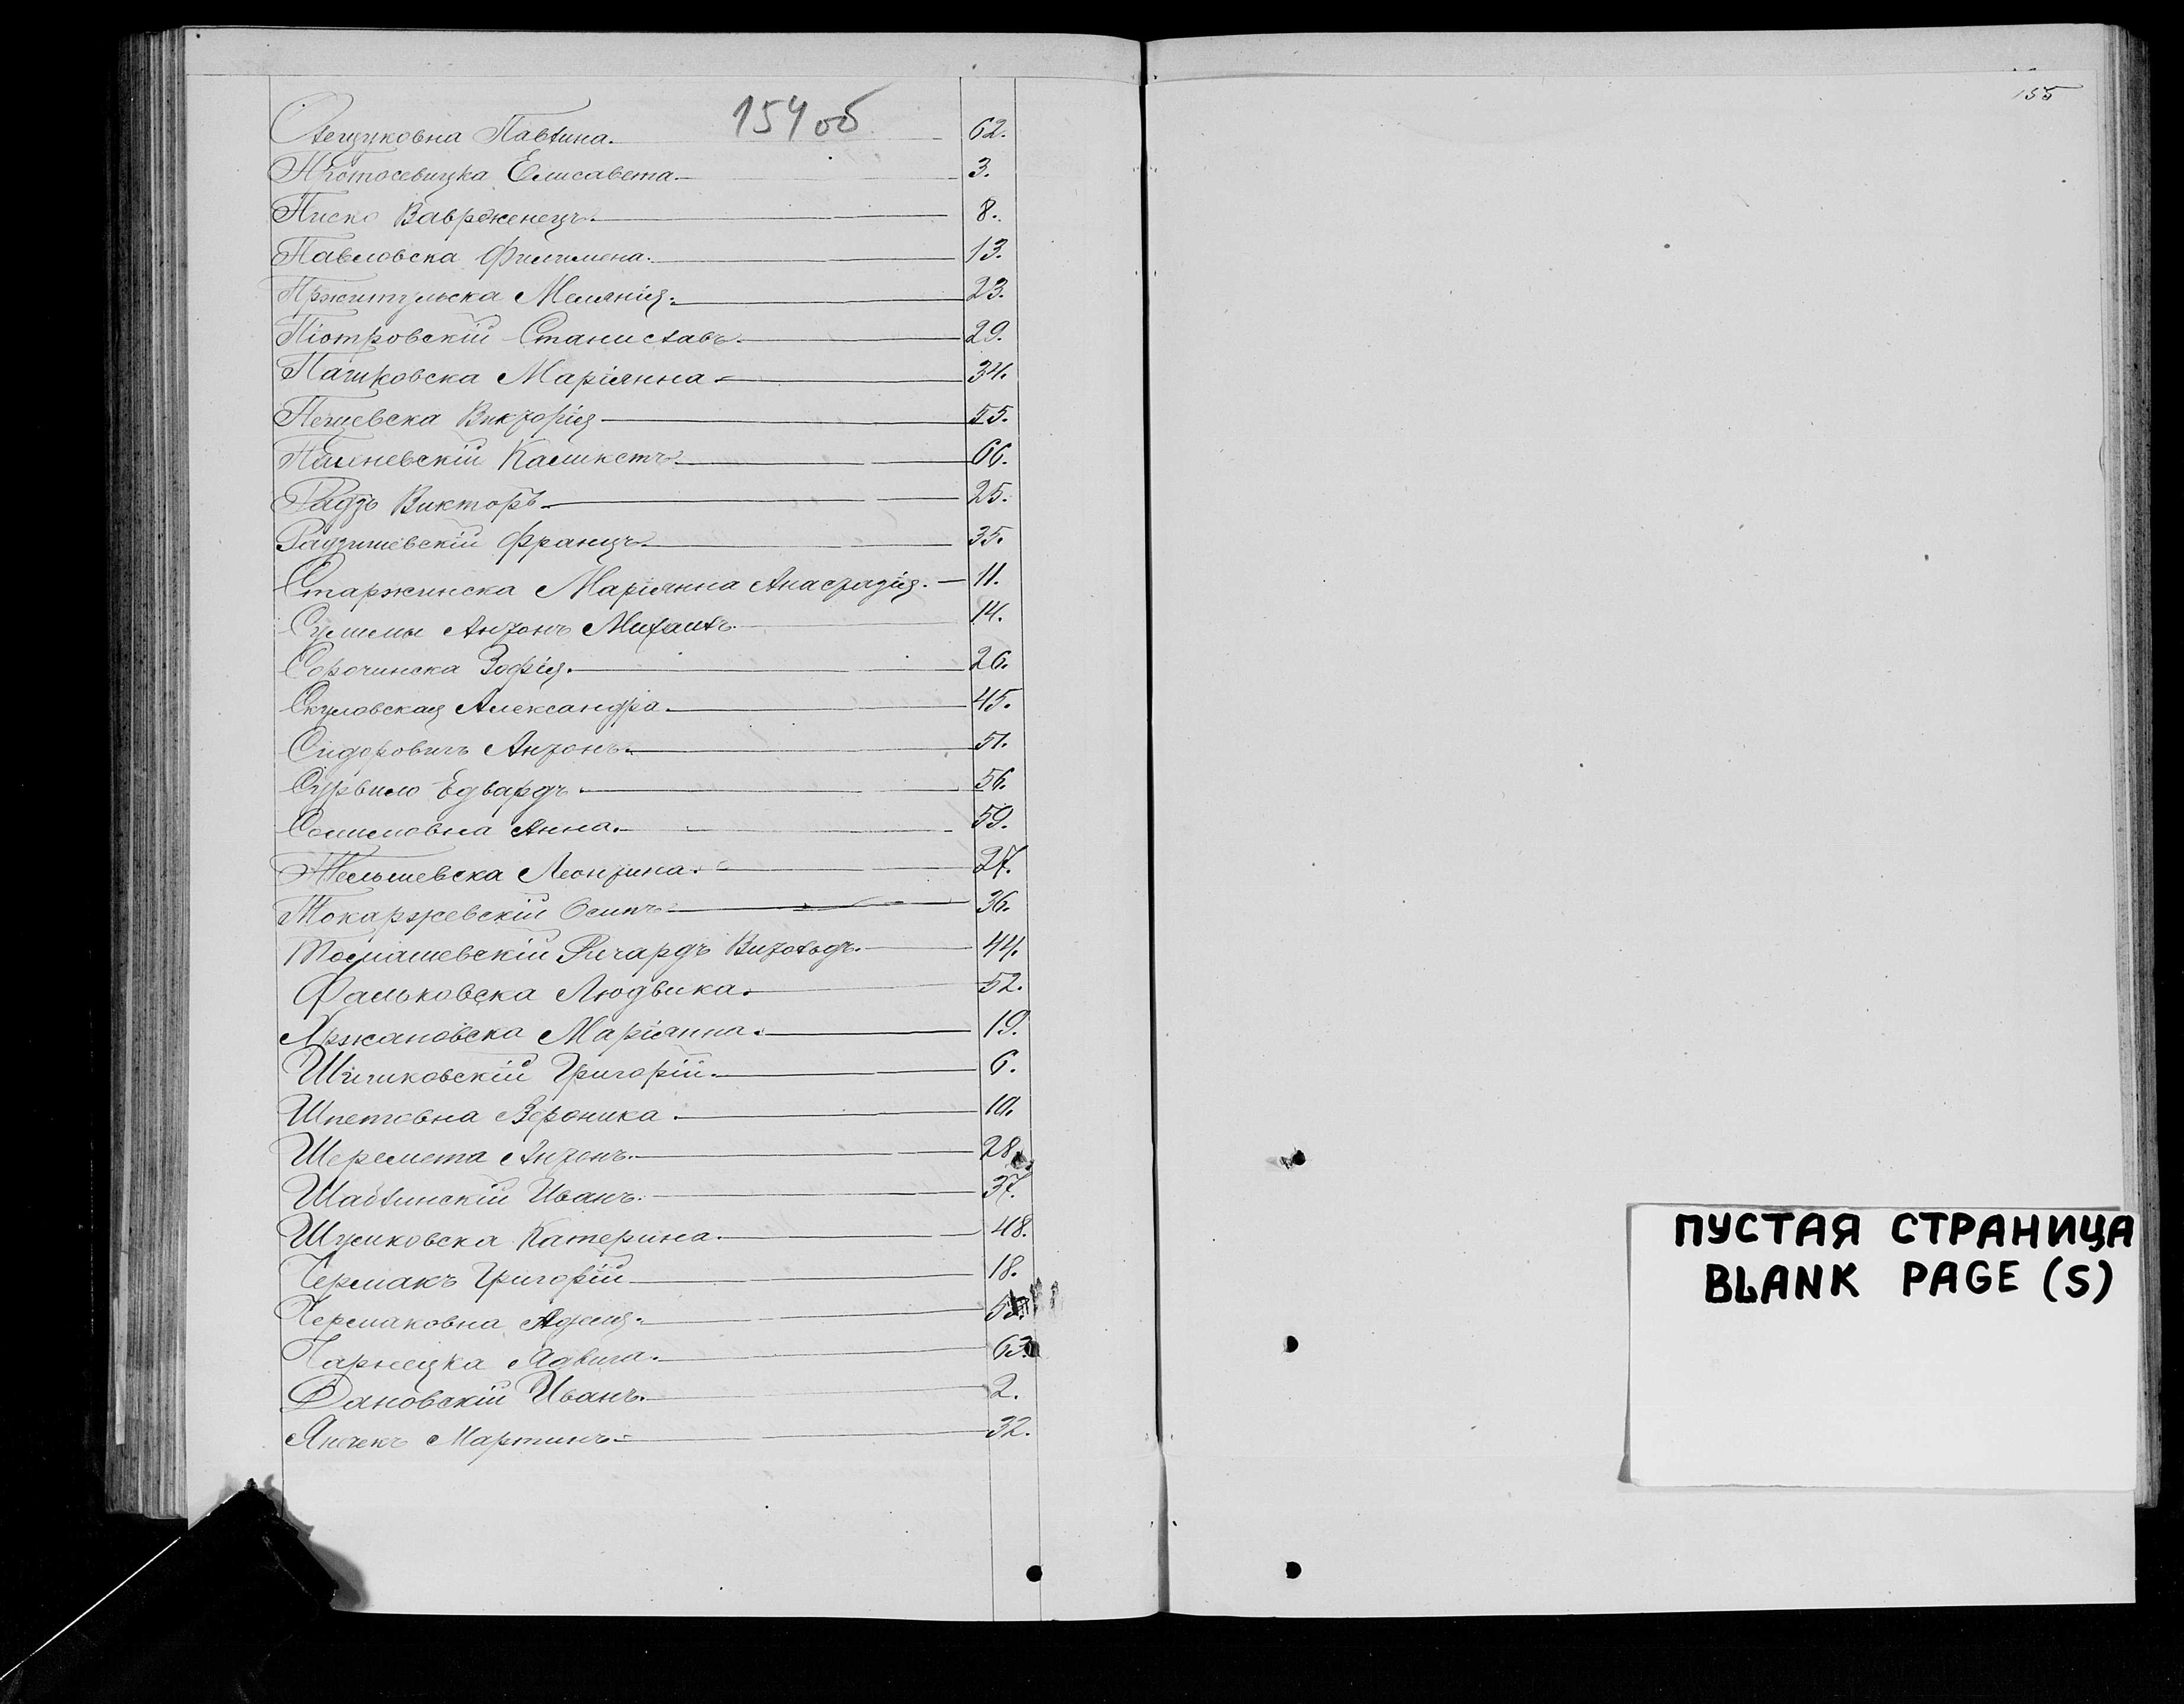 154 об
Олещуковна Павлина. 62.
Елисавета 3.
Писко Вавроженецъ. 8.
Павловска Филимена. 13.
Пржитульска Меланія. 23.
Піотровскій Станиславъ. 29.
Пашковска Маріянна 34.
Печиевска Викторія 55.
Каликстъ 66.
Радзъ Викторъ 25.
Радзишевскій Францъ. 35.
Старжинска Маріянна Анастазія. 11.
Антонъ Михаилъ. 14.
Сорочинска Зофія. 26.
Скуловская Александра. 45.
Сидоровичъ Антонъ. 51.
Сурвило Едвардъ. 56.
Анна. 59.
Тельшевска Леонтина. 27.
Токаржевскій Осипъ 36.
Томашевскій Ричардъ Витольдъ. 44.
Фальковска Людвика. 52.
Хржановска Маріянна. 19.
Шишковскій Григорій. 6.
Шпетовна Вероника. 10.
Шеремета Антонъ. 28.
Шаблинскій Иванъ. 37.
Шумковска Катерина. 48.
Чермакъ Григорій 18.
Чермаковна Аделя.
Чарнецка Ядвига. 63.
Яновскій Иванъ. 2.
Янчекъ Мартинъ 32.
155
ПУСТАЯ СТРАНИЦА
BLANK PAGE (S)